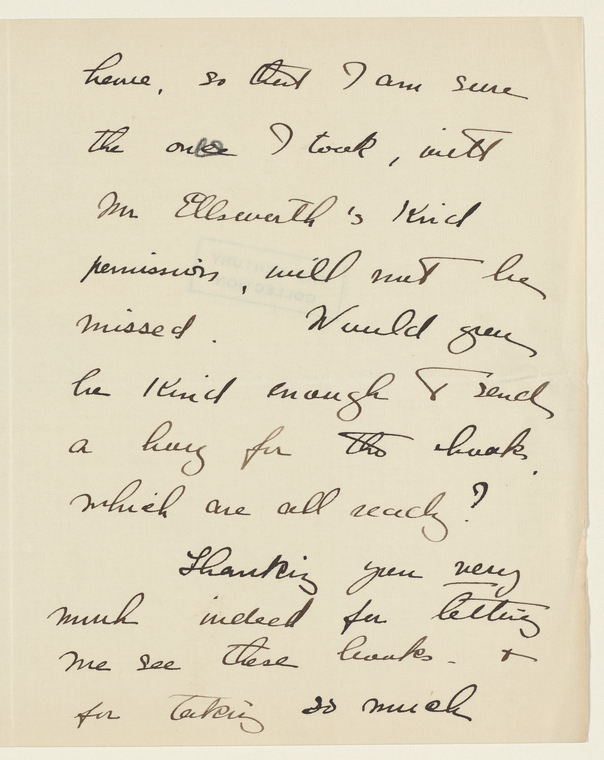 home, so that I am sure
the one I took, with
Mr Ellsworth's Kind
permission, will not be
missed. Would you
be Kind enough to send
a boy for the books,
which are all ready?
Thanking you very
much indeed for letting
me see these books - &
for taking so much